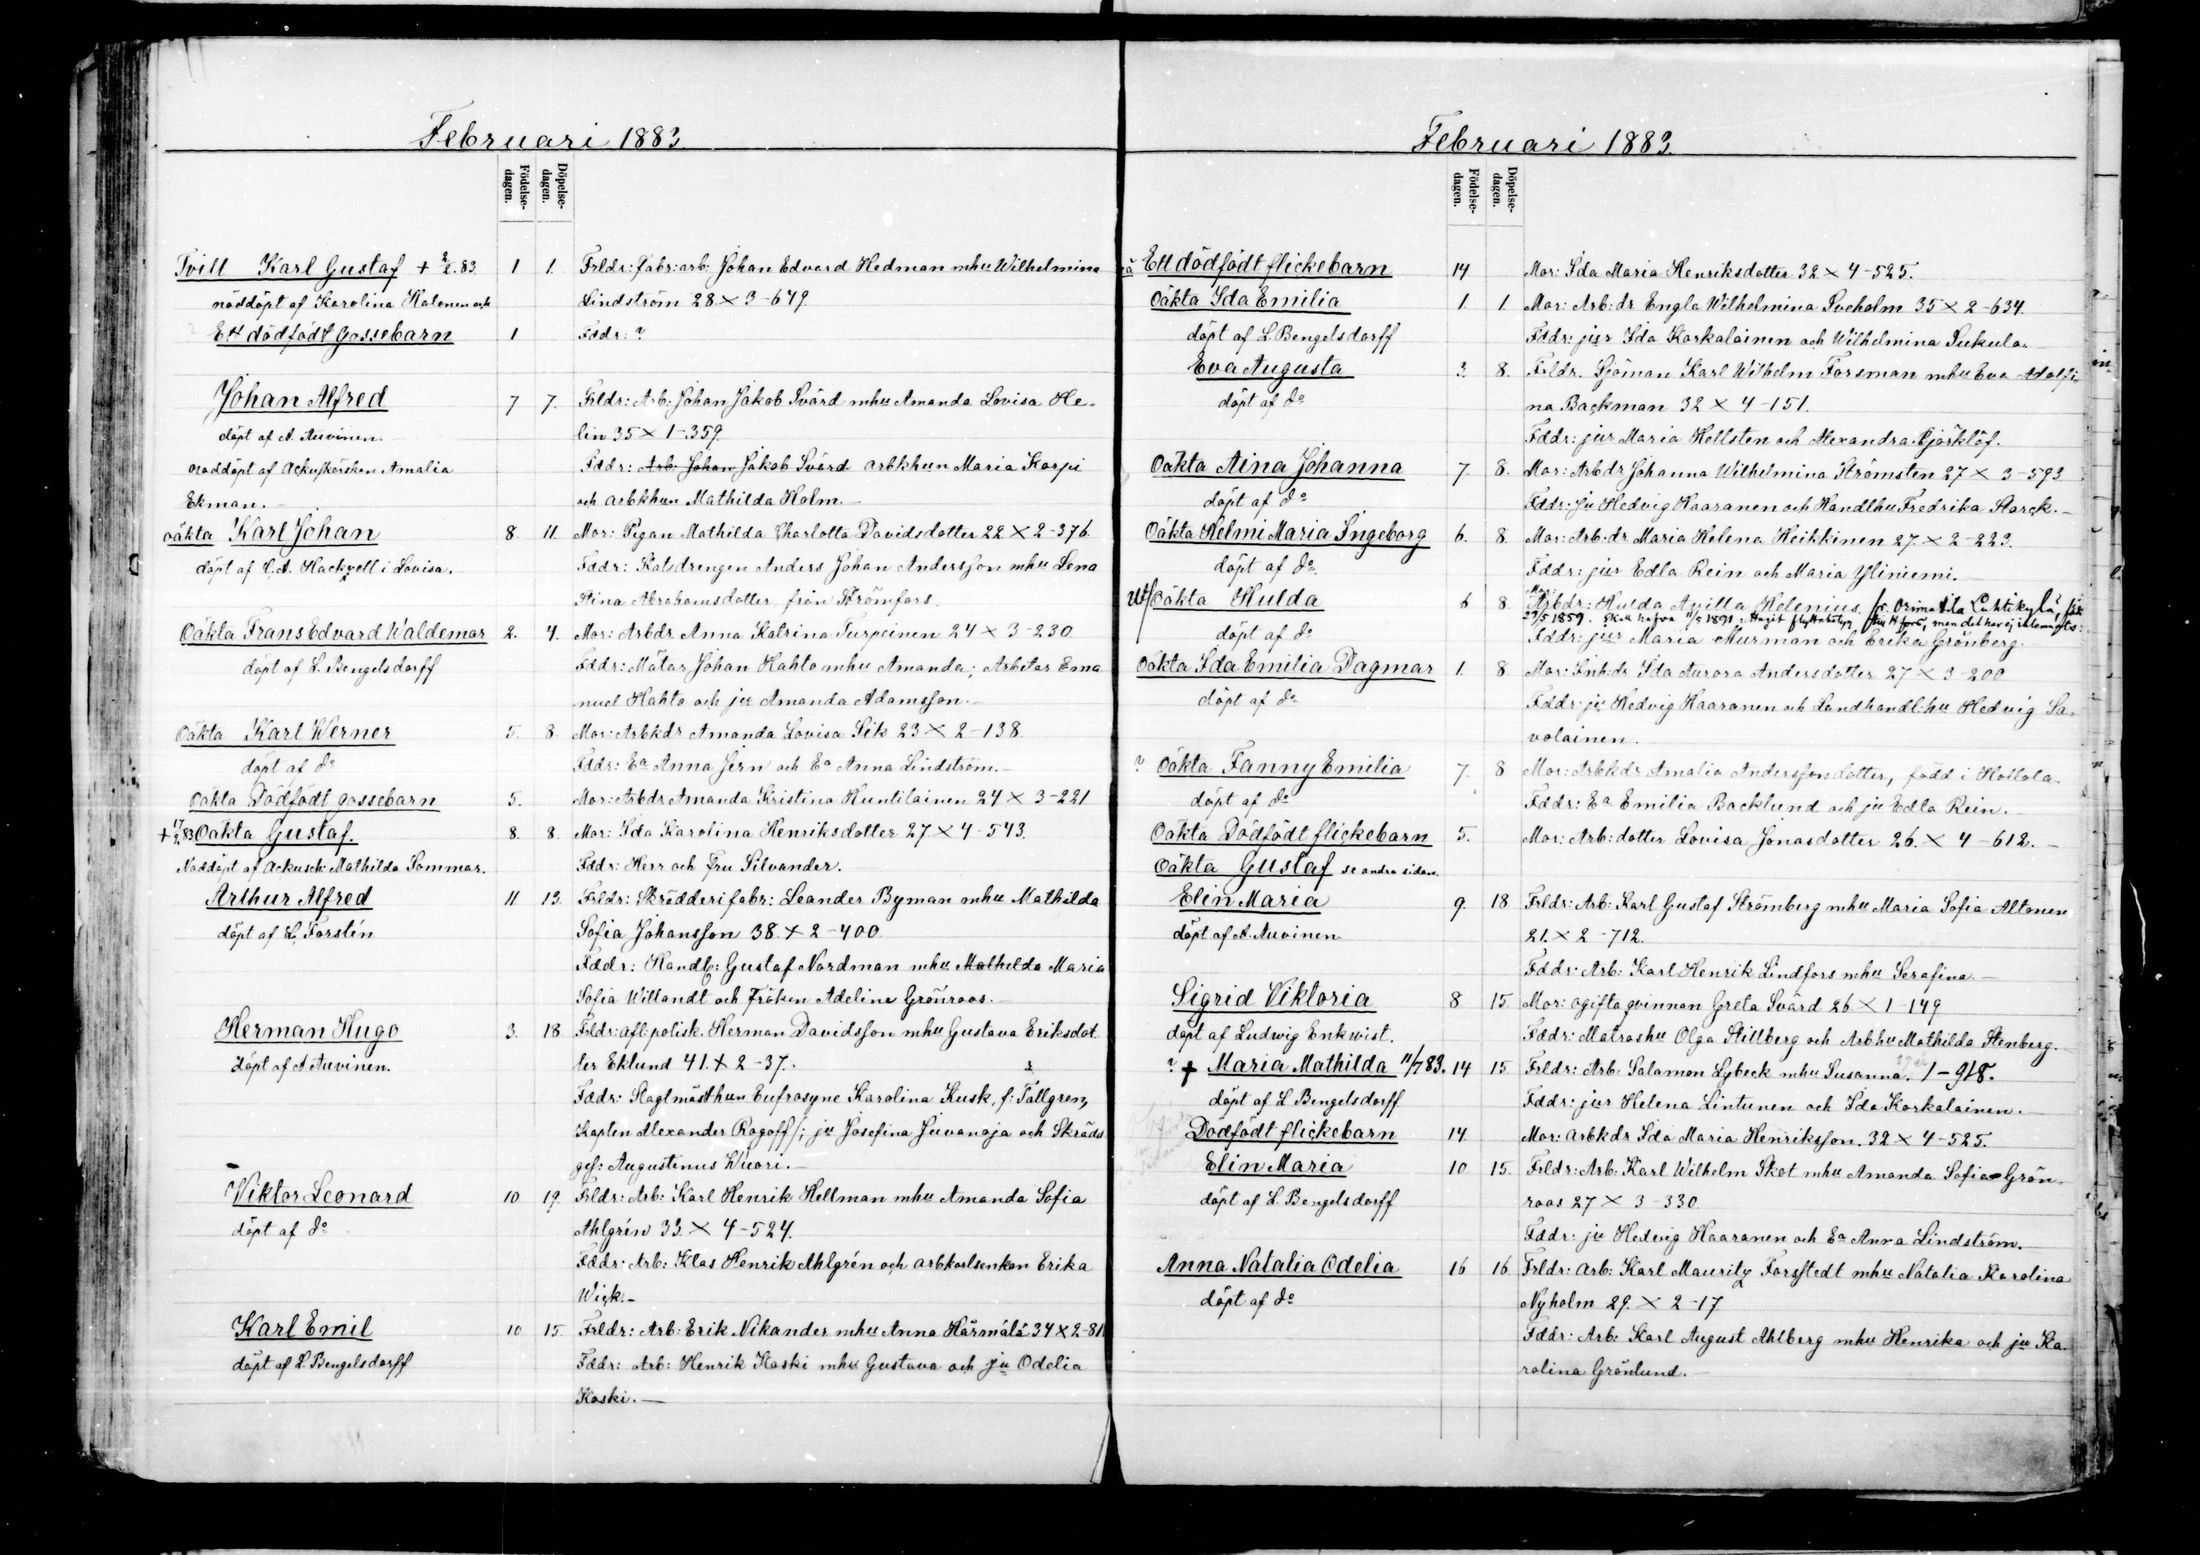 Februari 1883
Födelse-dagen. Döpelse-dagen.
Tvill Karl Gustaf + 2/2.83. 1 1. Frldr: fabr:arb: Johan Edvard Hedman mhu Wilhelmina
nöddöpt af Karolina Halonen och Lindström 28 × 3-679
Ett dödfödt gossebarn 1 Fddr: ?
Johan Alfred 7 7. Frldr: Arb: Johan Jakob Svärd mhu Amanda Lovisa He-
döpt af A. Auvinen. lin 35 × 1-359.
nöddöpt af Ackuschörskan Amalia Fddr: Arb: Johan Jakob Svärd arbkhun Maria Karpi
Ekman. och arbkhun Mathilda Holm.
oäkta Karl Johan 8. 11. Mor: Pigan Mathilda Charlotta Davidsdotter 22 × 2-376
döpt af C.A. Hackzell i Lovisa. Fddr: Kalsdrengen Anders Johan Andersson mhu Lena
Stina Abrahamsdotter från Strömfors.
Oäkta Frans Edvard Waldemar 2. 4. Mor: Arbdr Anna Katrina Turpeinen 24 × 3-230
döpt af L. Bengelsdorff Fddr: Målar Johan Hahto mhu Amanda; Arbetar Ema
nuel Hahto och jur Amanda Adamsson.
Oäkta Karl Werner 5. 8. Mor: Arbkdr Amanda Lovisa Sik 23 × 2-138
döpt af do Fddr: Ea Anna Jern och Ea Anna Lindström.
Oäkta Dödfödt gossebarn 5. Mor: Arbdr Amanda Kristina Huntilainen 24 × 3-221
+ 17/2.83 Oäkta Gustaf. 8. 8. Mor: Ida Karolina Henriksdotter 27 × 4-543.
Nöddöpt af Ackusch: Mathilda Sommar. Fddr: Herr och Fru Silvander.
Arthur Alfred 11 13. Frldr: Skrädderifabr: Leander Byman mhu Mathilda
döpt af L. Forslén Sofia Johansson 38 × 2-400
Fddr: Handl: Gustaf Nordman mhu Mathilda Maria
Sofia Willandt och Fröken Adeline Grönroos.
Herman Hugo 3. 18 Frldr: afl: polisk. Herman Davidsson mhu Gustava Eriksdot
döpt af A Auvinen. ter Eklund 41 × 2-37.
Fddr: Slagtmästhun Eufrosyne Karolina Kusk, f: Tallgren,
Kapten Alexander Rogoff; ju Josefina Juvanoja och Skräd
ges: Augustinus Wuori.
Viktor Leonard 10 19. Frldr: Arb: Karl Henrik Hellman mhu Amanda Sofia
döpt af do Ahlgrén 33 × 4-524.
Fddr: Arb: Klas Henrik Ahlgrén och arbkarlsenkan Erika
Wick.
Karl Emil 10 15. Frldr: Arb: Erik Nikander mhu Anna Härmälä 34 × 2-81
döpt af L. Bengelsdorff Fddr: Arb: Henrik Koski mhu Gustava och ju Odelia
Koski.
Februari 1883.
Födelse-dagen. Döpelse-dagen.
Ett dödfödt flickebarn 14 Mor: Ida Maria Henriksdotter 32 × 4-525.
Oäkta Ida Emilia 1. 1. Mor: Arb: dr Engla Wilhelmina Sveholm 35 × 2-634.
döpt af L. Bengelsdorff Fddr: jur Ida Korkalainen och Wilhelmina Sukula.
Eva Augusta 3. 8. Frldr. Sjöman Karl Wilhelm Forsman mhu Eva Adolfi-
döpt af do na Backman 32 × 4-151.
Fddr: jur Maria Hellsten och Alexandra Björklöf.
Oäkta Aina Johanna 7. 8. Mor: Arbdr Johanna Wilhelmina Strömsten 27 × 3-593
döpt af do Fddr: ju Hedvig Haaranen och Handlhu Fredrika Starck.
Oäkta Helmi Maria Ingeborg 6. 8. Mor: Arb:dr Maria Helena Heikkinen 27 × 2-223.
döpt af do. Fddr: jur Edla Rein och Maria Yliniemi.
Utf Oäkta Hulda 6 8. Mor: Arbdr: Hulda Avilla Helenius fr. Orimattila Luhtikylä, född
29/5 1859. Skall hafva 11/5 1891 tagit flyttbetyg till H:fors, men det har ej inlemnats.
döpt af do Fddr: jur Maria Murman och Erika Grönberg.
Oäkta Ida Emilia Dagmar 1. 8 Mor: Ida Aurora Andersdotter 27 × 3-200
döpt af do Fddr: ju Hedvig Haaranen och Landhandl:hu Hedvig Sa-
volainen.
? Oäkta Fanny Emilia 7. 8 Mor: Arbkdr Amalia Anderssondotter, född i Hollola.
döpt af do Fddr: Ea Emilia Backlund och ju Edla Rein.
Oäkta Dödfödt flickebarn 5. Mor: Arb: dotter Lovisa Jonasdotter 26 × 4-612.
Oäkta Gustaf se andra sidan.
Elin Maria 9. 18 Frldr: Arb: Karl Gustaf Strömberg mhu Maria Sofia Altonen
döpt af A. Auvinen. 21. × 2-712.
Fddr: Arb: Karl Henrik Lindfors mhu Serafina.
Sigrid Viktoria 8 15. Mor: ogifta qvinnan Greta Svärd 26 × 1-149
döpt af Ludwig Enkwist. Fddr: Matroshu Olga Stillberg och Arbhu Mathilda Stenberg.
? + Maria Mathilda 11/7 83. 14 15 Frldr: Arb: Salamon Lybeck mhu Susanna. 1-918.
döpt af L Bengelsdorff Fddr: jur Helena Lintunen och Ida Korkalainen.
Dödfödt flickebarn 14 Mor: arbkdr Ida Maria Henriksson. 32 × 4-525.
Elin Maria 10 15. Frldr: Arb: Karl Wilhelm Skot mhu Amanda Sofia Grön-
döpt af L. Bengelsdorff roos 27 × 3-330
Fddr: ju Hedvig Haaranen och Ea Anna Lindström.
Anna Natalia Odelia 16 16 Frldr: arb: Karl Mauritz Forsstedt mhu Natalia Karolina
döpt af do Nyholm 29. × 2-17
Fddr: Arb: Karl August Ahlberg mhu Henrika och ju Ka-
rolina Grönlund.